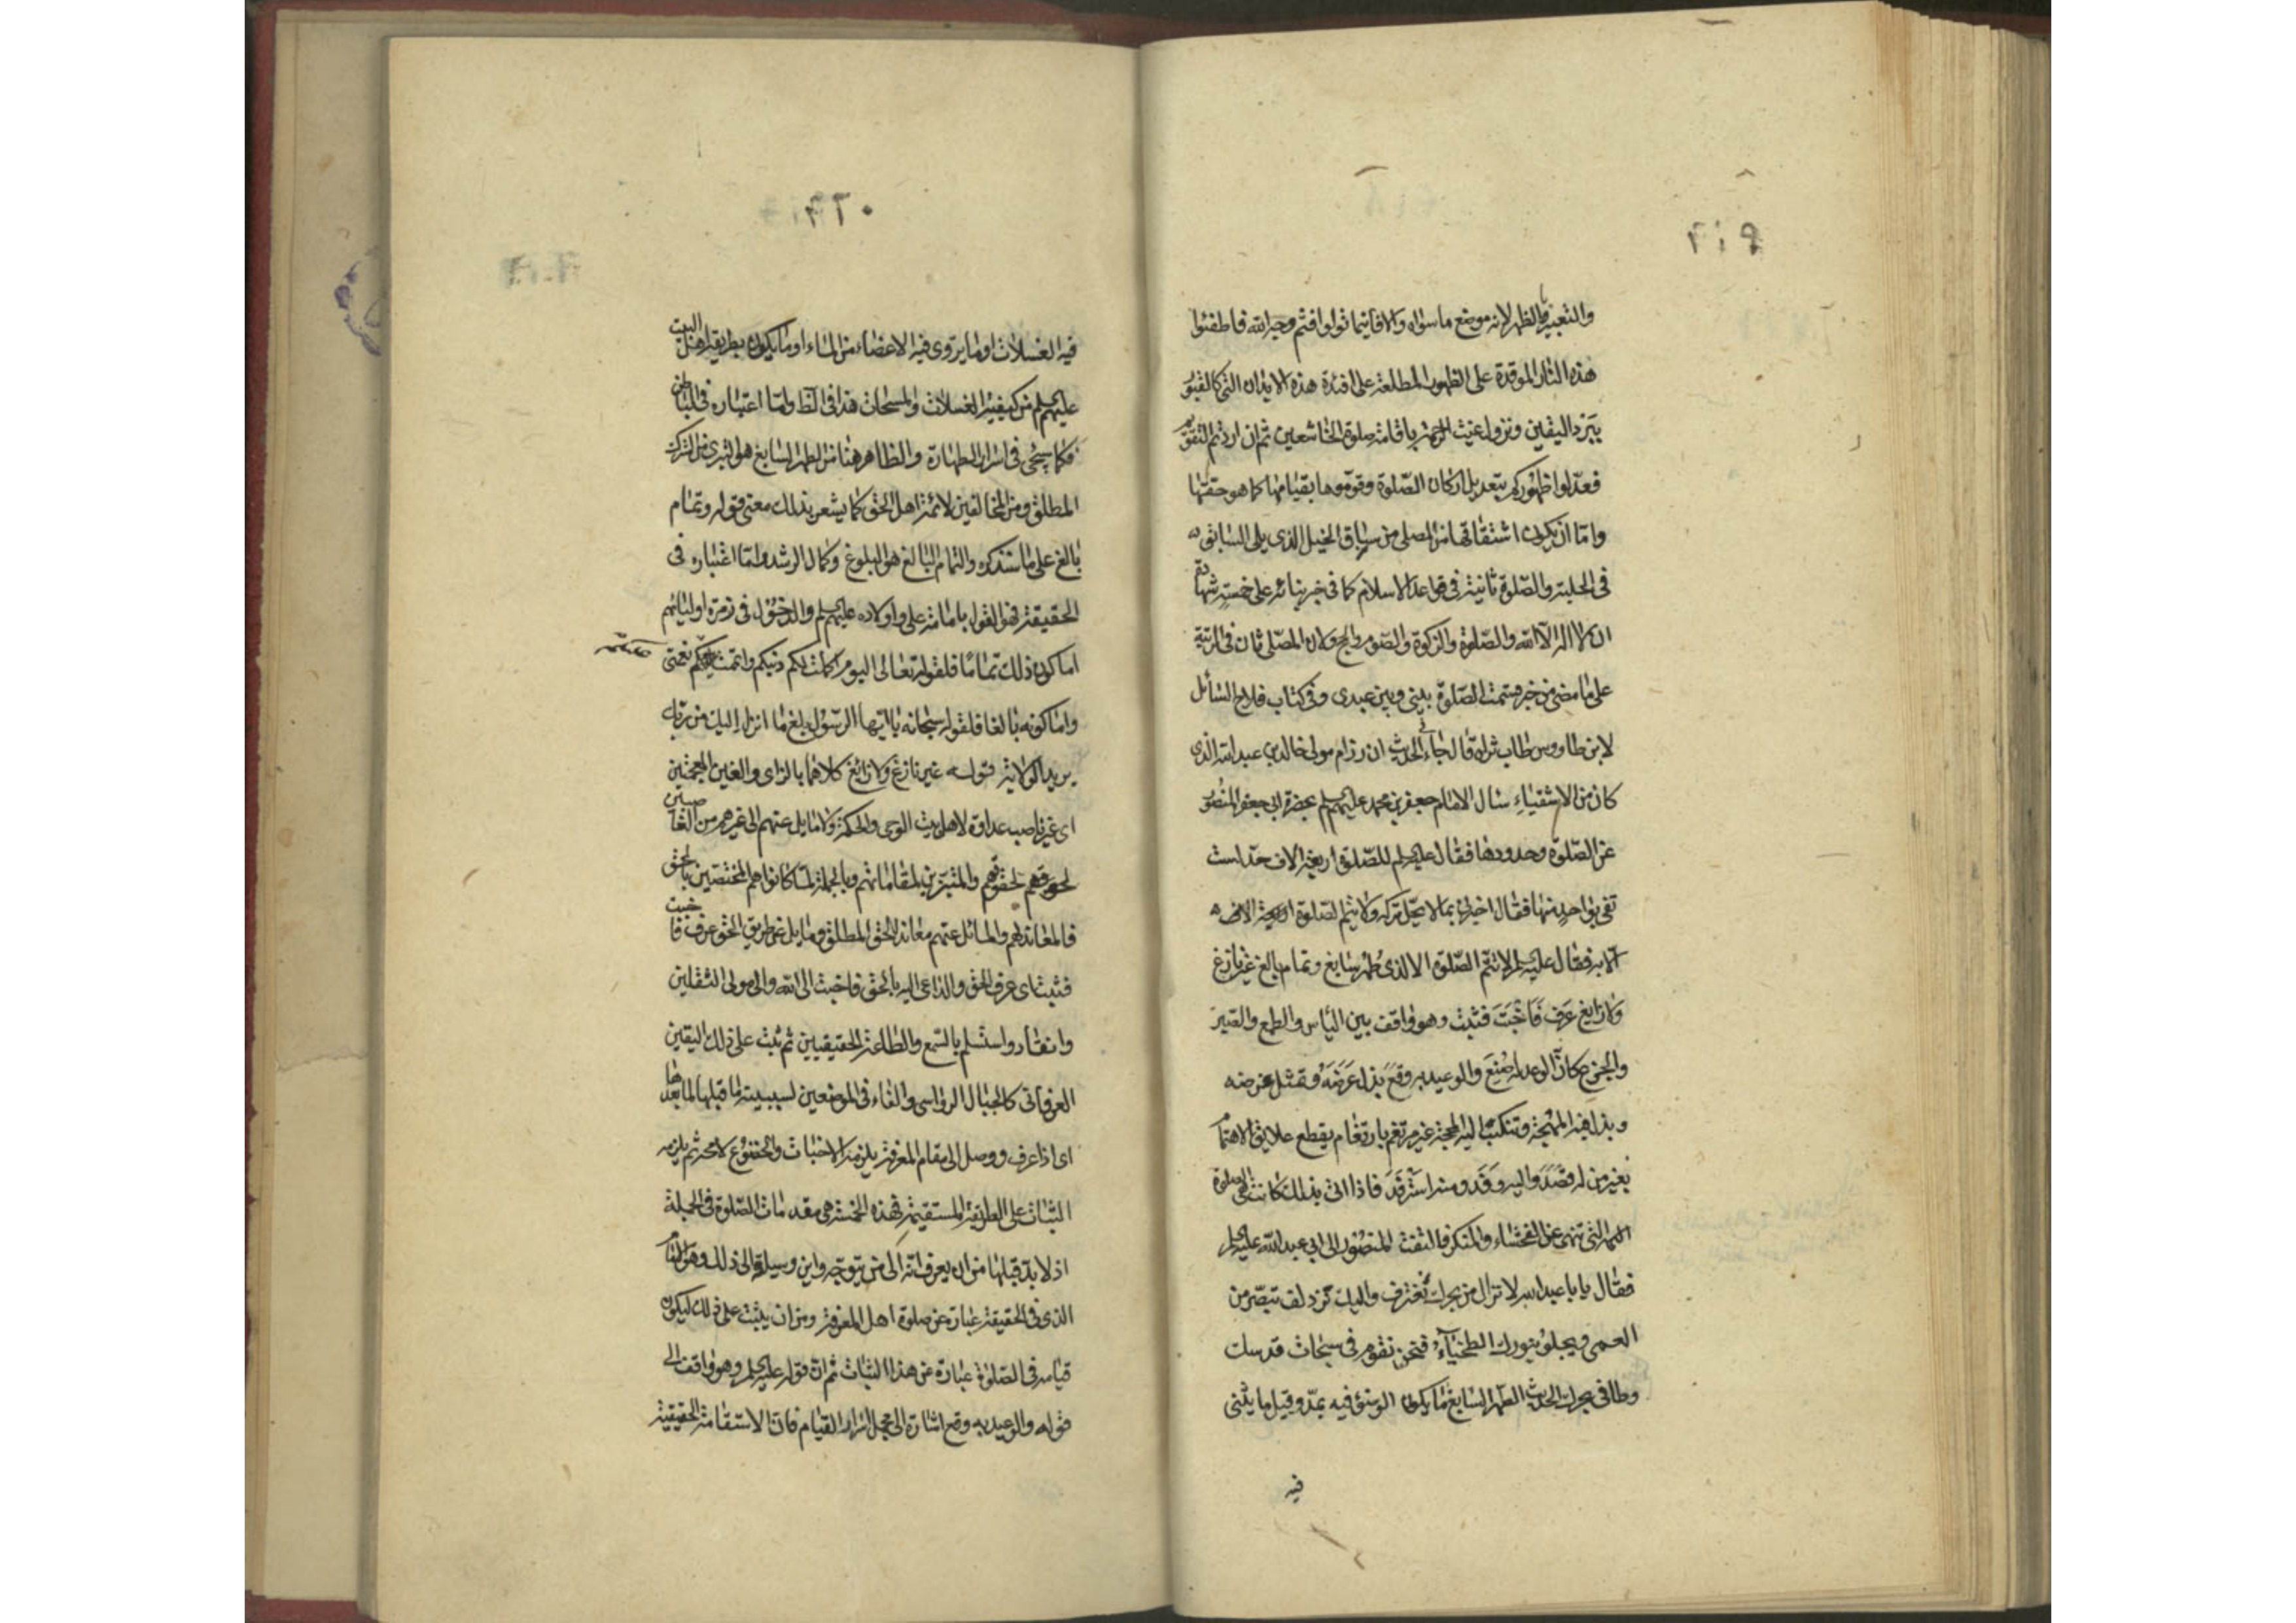 ٢١٩
والتعبير بالظهر لانه موضع ما سواه والا فاينما تولوا فثم وجه الله فاطفئوا
هذه النار الموقدة على الظهور المطلعة على افئدة هذه الابدان التي كالقبور
ببرد اليقين ونزول غيث الرحمة باقامة صلوة الخاشعين ثم ان اردتم التقويم
فعدلوا ظهوركم بتعديل اركان الصلوة وقوموها بقيامها كما هو حقها
واما ان يكون اشتقاقها من المصلى من سباق الخيل الذي يلي السابق
في الحلبة والصلوة ثانية في قواعد الاسلام كما في خبر بنائه على خمسة شهادة
ان لا اله الا الله والصلوة والزكوة والصوم والحج ولان المصلى ثان في الرتبة
على ما مضى من خبر قسمت الصلوة بيني وبين عبدي وفي كتاب فلاح السائل
لابن طاووس طاب ثراه قال جاء في الحديث ان رزام مولى خالد بن عبد الله الذي
كان من الاشقياء سال الامام جعفر بن محمد عليهم السلم بحضرة ابي جعفر المنصور
عن الصلوة وحدودها فقال عليه السلم للصلوة اربعة الاف حد لست
تفي بواحد منها فقال اخبرني بما لا يحل تركه ولا يتم الصلوة
الا به فقال عليه السلم لا تتم الصلوة الا لذي طهر سابغ وتمام بالغ غير نازغ
ولا زايغ عرف فاخبت فثبت وهو واقف بين الياس والطمع والصبر
والجزع كان الوعد له صنع والوعيد به وقع بذل عرضه وتمثل غرضه
وبذل فيه المهجة وتنكب اليه المحجة غير مرتغم بارتغام يقطع علايق الاهتمام
بغير من له قصد واليه وفد ومنه استرفد فاذا اتى بذلك كانت هي الصلوة
التي تنهى عن الفحشاء والمنكر فالتفت المنصور الى ابي عبد الله عليه السلم
فقال يا با عبد الله لا نزال من بحرك نغترف واليك نزدلف تبصر من
العمى ويجلو بنورك الطخياء فنحن نقوم في سبحات قدسك
وطافي بحرك الحديث الطهر السابغ ما يكون الوضوء فيه بمد وقيل ما يثنى
فيه
٢٢٠
فيه الغسلات او ما يروى فيه الاعضاء من الماء او ما يكون بطريقة اهل البيت
عليهم السلم من كيفية الغسلات والمسحات هذا في الظ واما اعتباره في الباطن
فكما سيجئ في اسرار الطهارة والظاهر هنا من الطهر السابغ هو التبري من الشرك
المطلق ومن المخالفين لائمة اهل الحق كما يشعر بذلك معنى قوله وتمام
بالغ على ما سنذكره والتمام البالغ هو البلوغ وكمال الرشد واما اعتباره في
الحقيقة فهو القول بامامة علي واولاده عليهم السلم والدخول في زمرة اوليائهم
اما كون ذلك تماما فلقوله تعالى اليوم اكملت لكم دينكم واتممت عليكم نعمتي
واما كونه بالغا فلقوله سبحانه يا ايها الرسول بلغ ما انزل اليك من ربك
يريد الولاية قوله غير نازغ ولا زائغ كلاهما بالزاي والغين المعجمتين
اي غير ناصب عداوة لاهل بيت الوحي والحكمة ولا مايل عنهم الى غيرهم من الغاصبين
لحقوقهم والمتبرزين لمقاماتهم وبالجملة لما كانوا هم المختصين بالحق
فالمعاند لهم والمائل عنهم معاند للحق المطلق ومايل عن طريق الحق عرف فاخبت
فثبت اي عرف الحق والداعي اليه بالحق فاخبت الى الله والى مولى الثقلين
وانقاد واستسلم بالسمع والطاعة الحقيقيين ثم ثبت على ذلك اليقين
العرفاني كالجبال الرواسي والفاء في الموضعين لسببية ما قبلها لما بعدها
اي اذا عرف ووصل الى مقام المعرفة يلزمه الاخبات والخضوع لا محة ثم يلزمه
الثبات على الطريقة المستقيمة فهذه الخمسة هي مقدمات الصلوة في الجملة
اذ لا بد قبلها من ان يعرف انه الى من يتوجه واين وسيلة الى ذلك
الذي في الحقيقة عبارة عن صلوة اهل المعرفة ومن ان يثبت على ذلك ليكون
قيامه في الصلوة عبارة عن هذا الثبات ثم ان قوله عليه السلم وهو واقف الى
قوله والوعيد به وقع اشارة الى مجمل اسرار القيام فان الاستقامة الحقيقية